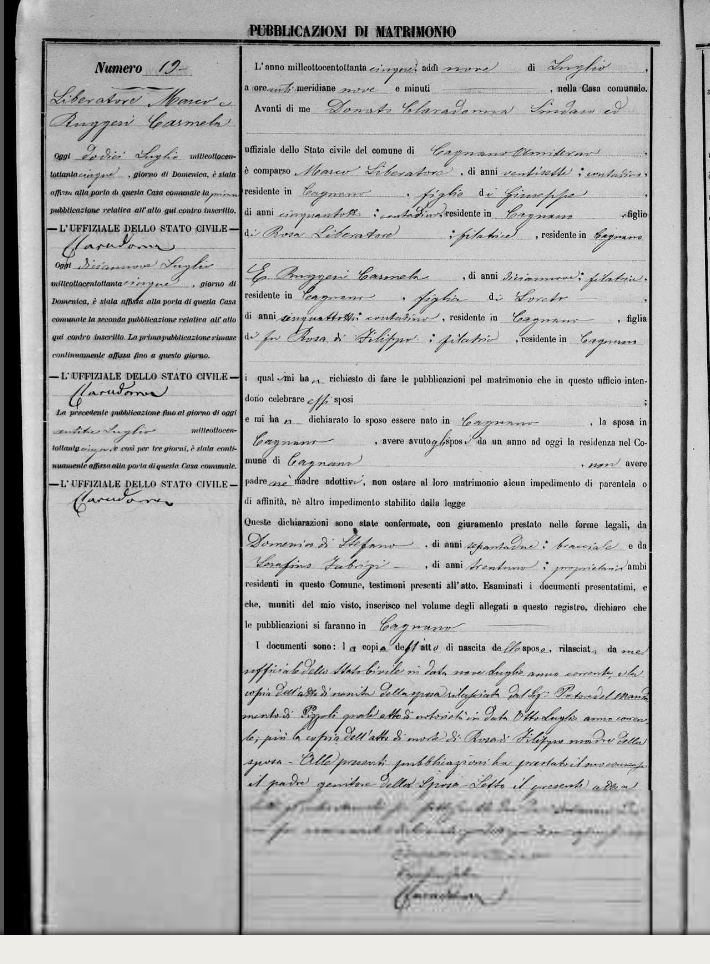 PUBBLICAZIONI DI MATRIMONIO
Numero 19
Liberatore Marco e
Ruggeri Carmela
Oggi dodici Luglio milleottocen-
tottantacinque, giorno di Domenica, è stata
affissa alla porta di questa Casa comunale la prima
pubblicazione relativa all'atto qui contro inserito.
—L'UFFIZIALE DELLO STATO CIVILE—
Claradonna
Oggi diciannove Luglio
milleottocentottantacinque, giorno di
Domenica, è stata affissa alla porta di questa Casa
comunale la seconda pubblicazione relativa all'atto
qui contro inserito. La prima pubblicazione rimase
continuamente affissa fino a questo giorno.
—L'UFFIZIALE DELLO STATO CIVILE—
Claradonna
La precedente pubblicazione fino al giorno di oggi
Luglio milleottocen-
tottantacinque e così per tre giorni, è stata conti-
nuamente affissa alla porta di questa Casa comunale.
—L'UFFIZIALE DELLO STATO CIVILE—
Claradonna
L'anno milleottocentottantacinque, addì nove di Luglio,
a ore anti meridiane nove e minuti, nella Casa comunale.
Avanti di me Donato Claradonna Sindaco ed
uffiziale dello Stato civile del comune di Cagnano Amiterno
è comparso Marco Liberatore, di anni ventisette: contadino,
residente in Cagnano, figlio di Giuseppe,
di anni cinquantotto: contadino, residente in Cagnano, figlio
di Rosa Liberatore: filatrice, residente in Cagnano
E Ruggeri Carmela, di anni diciannove: filatrice,
residente in Cagnano, figlia di Loreto
di anni cinquattotto: contadino, residente in Cagnano, figlia
di fu Rosa di Filippo: filatrice, residente in Cagnano
i quali mi han richiesto di fare le pubblicazioni pel matrimonio che in questo uffìcio inten-
dono celebrare essi sposi;
e mi han dichiarato lo sposo essere nato in Cagnano, la sposa in
Cagnano, avere avuto gli sposi da un anno ad oggi la residenza nel Co-
mune di Cagnano, non avere
padre nè madre adottivi, non ostare al loro matrimonio alcun impedimento di parentela o
di affinità, nè altro impedimento stabilito dalla legge
Queste dichiarazioni sono state confermate, con giuramento prestato nelle forme legali, da
Domenico di Stefano, di anni: bracciale e da
Serafino Fabrizi, di anni trentuno: proprietario ambi
residenti in questo Comune, testimoni presenti all'atto. Esaminati i documenti presentatimi, e
che, muniti del mio visto, inserisco nel volume degli allegati a questo registro, dichiaro che
le pubblicazioni si faranno in Cagnano
I documenti sono: la copia dell'atto di nascita dello sposo, rilasciata da me
ufficiale dello Stato Civile in data nove Luglio anno corrente, e la
copia dell'atto di nascita della sposa rilasciata dal Sig. Pretore del Manda
mento di Pizzoli quale atto di notorietà in data Otto Luglio anno corren-
te, più la copia dell'atto di morte di Rosa di Filippo madre della
sposa - Alle presenti pubblicazioni ha prestato il suo consenso
il padre genitore della Sposa - Letto il presente atto a
Claradonna